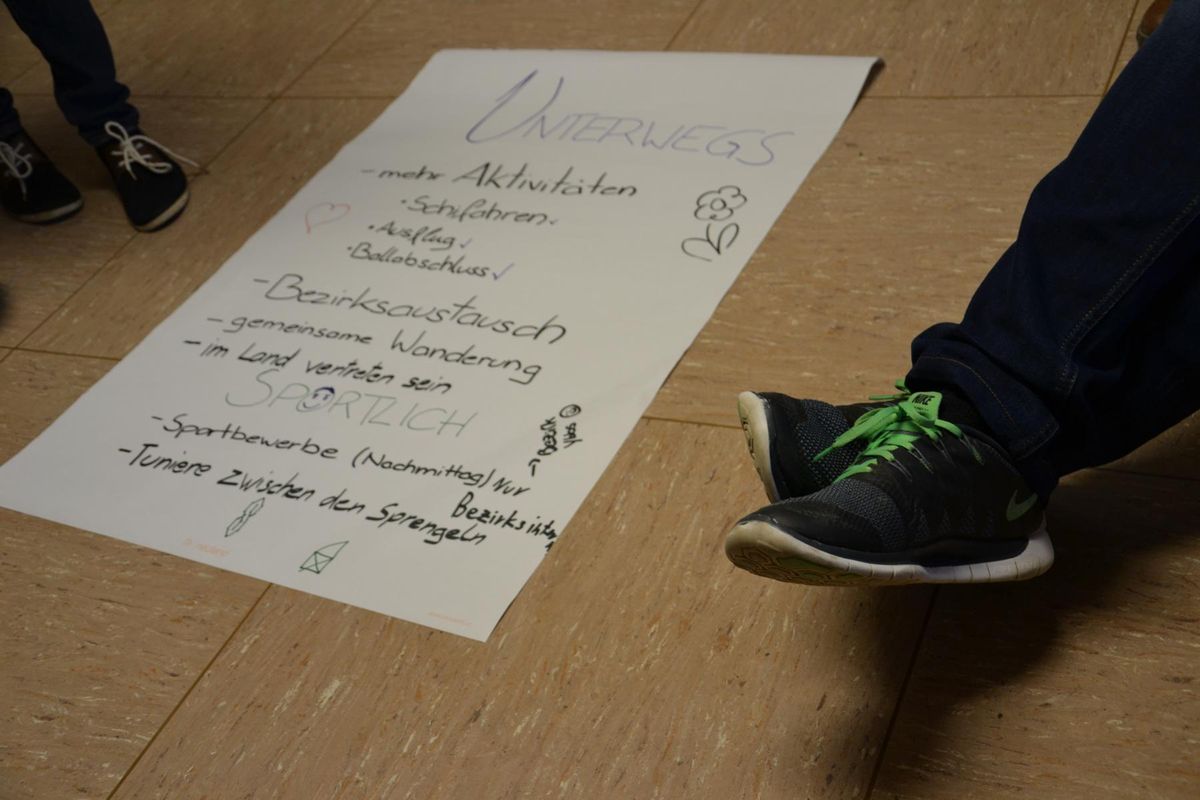 UNTERWEGS
- mehr Aktivitäten
• Schifahren
• Ausflug ✓
• Ballabschluss ✓
- Bezirksaustausch
- gemeinsame Wanderung
- im Land vertreten sein
SPORTLICH
- Sportbewerbe (Nachmittag) nur
Bezirksintern
- Tuniere zwischen den Sprengeln
→ Bezirk
NIKE